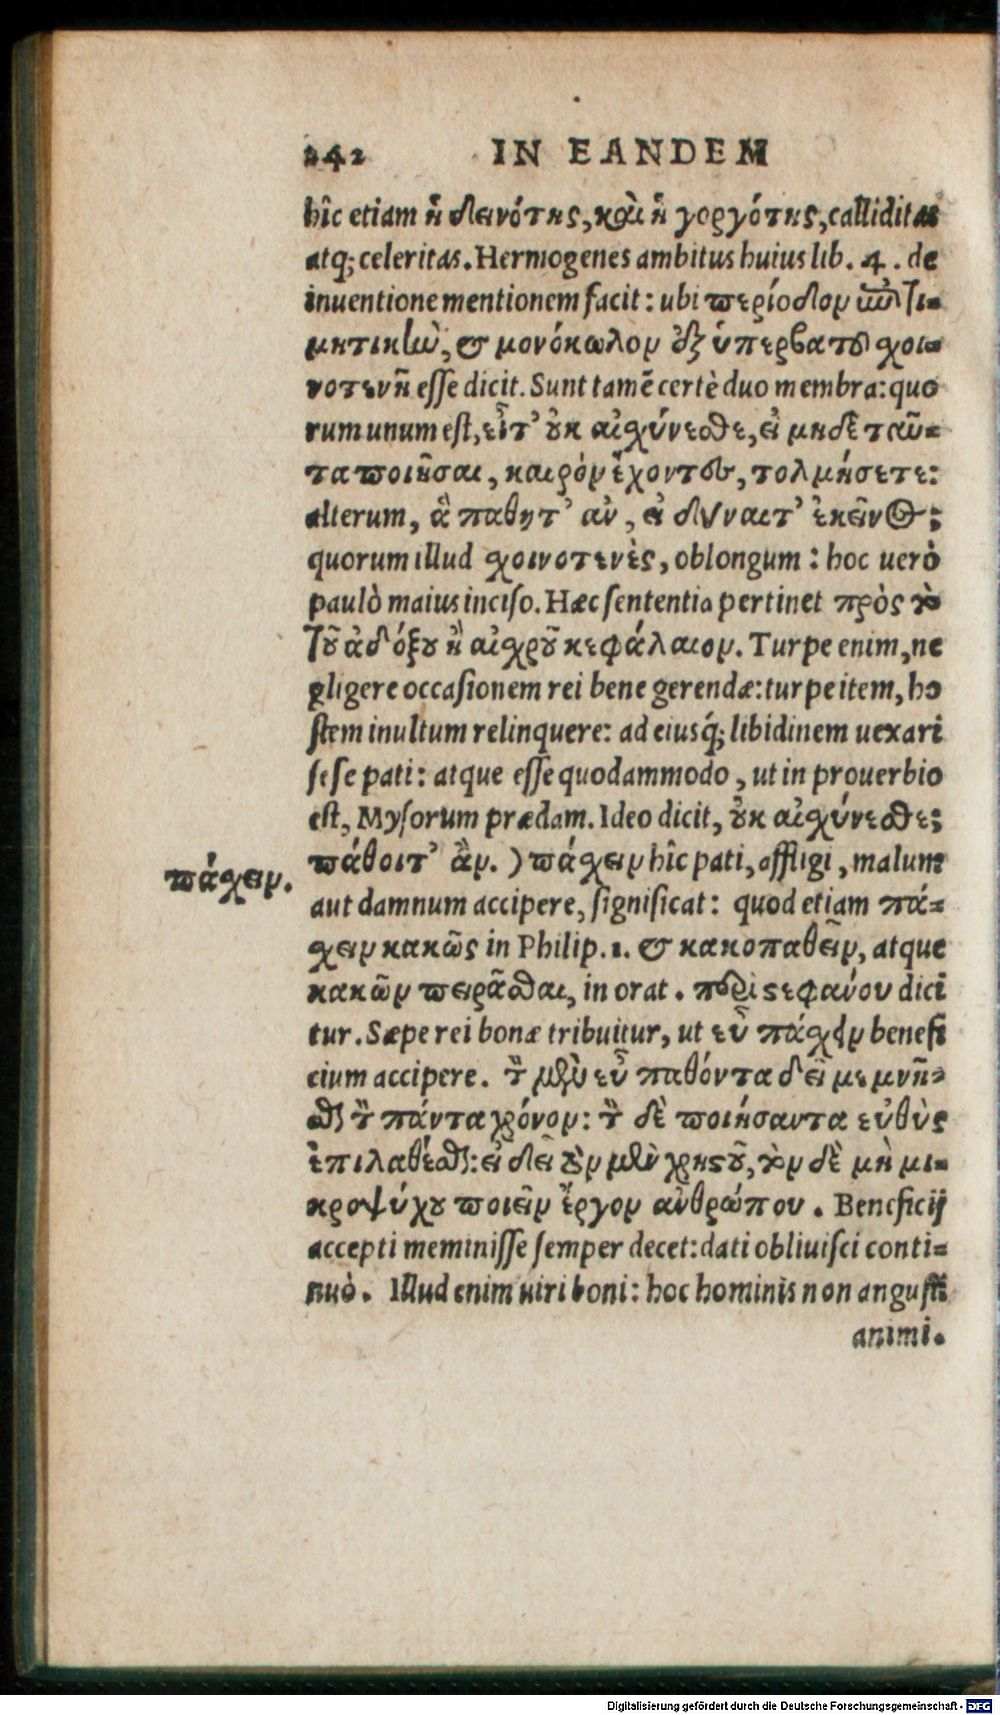 242 IN EANDEM
hîc etiam ἡ δεινότης, καὶ ἡ γοργότης, calliditas
atq; celeritas. Hermogenes ambitus huius lib. 4. de
inuentione mentionem facit: ubi περίοδον ἐπιτι-
μητικὴν, & μονόκωλον ἐξ ὑπερβατοῦ χοι-
νοτενῆ esse dicit. Sunt tamē certè duo membra: quo
rum unum est, εἶτ' οὐκ αἰσχύνεσθε, εἰ μηδὲ ταῦ-
τα ποιῆσαι, καιρὸν ἔχοντες, τολμήσετε:
alterum, ἃ παθητ' αν, εἰ δύναιτ' ἐκεῖνος;
quorum illud σχοινοτενὲς, oblongum: hoc uerò
paulò maius inciso. Hæc sententia pertinet πρὸς τὸ
τοῦ ἀδόξου ἢ αἰσχροῦ κεφάλαιον. Turpe enim, ne
gligere occasionem rei bene gerendæ: turpe item, ho
stem inultum relinquere: ad eiusq́; libidinem uexari
sese pati: atque esse quodammodo, ut in prouerbio
est, Mysorum prædam. Ideo dicit, οὐκ αἰσχύνεσθε;
πάθοιτ' ἂν. ) πάσχειν hîc pati, affligi, malum
πάσχειν.
aut damnum accipere, significat: quod etiam πά-
σχειν κακῶς in Philip. 1. & κακοπαθεῖν, atque
κακῶν πειρᾶσθαι, in orat. περὶ στεφάνου dici
tur. Sæpe rei bonæ tribuitur, ut εὖ πάσχειν benefi
cium accipere. τὸν μὲν εὖ παθόντα δεῖ μεμνῆ-
σθαι τὸν πάντα χρόνον: τὸν δὲ ποιήσαντα εὐθὺς
ἐπιλαθέσθαι: εἰ δεῖ τὸν μὲν χρηστοῦ, τὸν δὲ μὴ μι-
κροψύχου ποιεῖν ἔργον ἀνθρώπου. Beneficij
accepti meminisse semper decet: dati obliuisci conti-
nuò. Illud enim uiri boni: hoc hominis non angusti
animi.
Digitalisierung gefördert durch die Deutsche Forschungsgemeinschaft - DFG